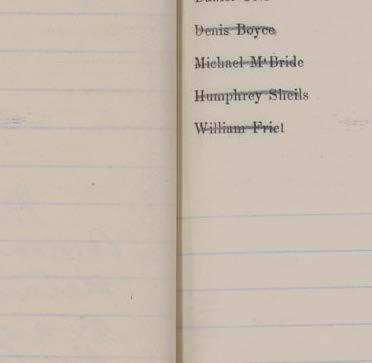 Denis Boyce
Michael McBride
Humphrey Sheils
William Friel